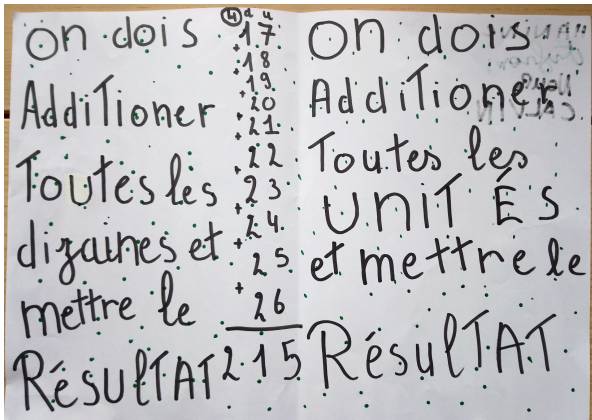 On dois
AddiTioner
TouTes les
dizaines et
mettre le
RésulTAT
4 d u
17
+ 18
+ 19
+ 20
+ 21
+ 22
+ 23
+ 24
+ 25
+ 26
215
On dois
AddiTioner
Toutes les
UNITÉS
et mettre le
RésulTAT
CALVIN